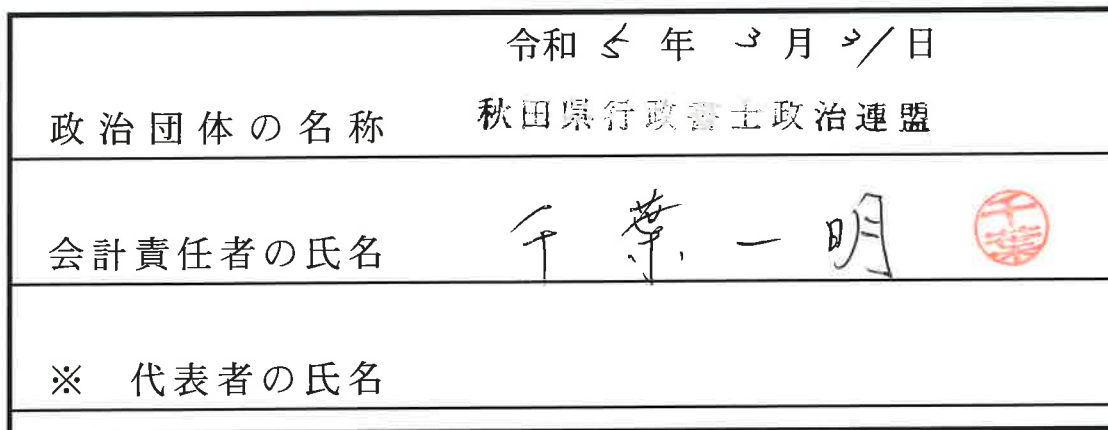 令和 5 年 3 月 31 日
政治団体の名称 秋田県行政書士政治連盟
会計責任者の氏名 千葉 一明 千葉
※ 代表者の氏名